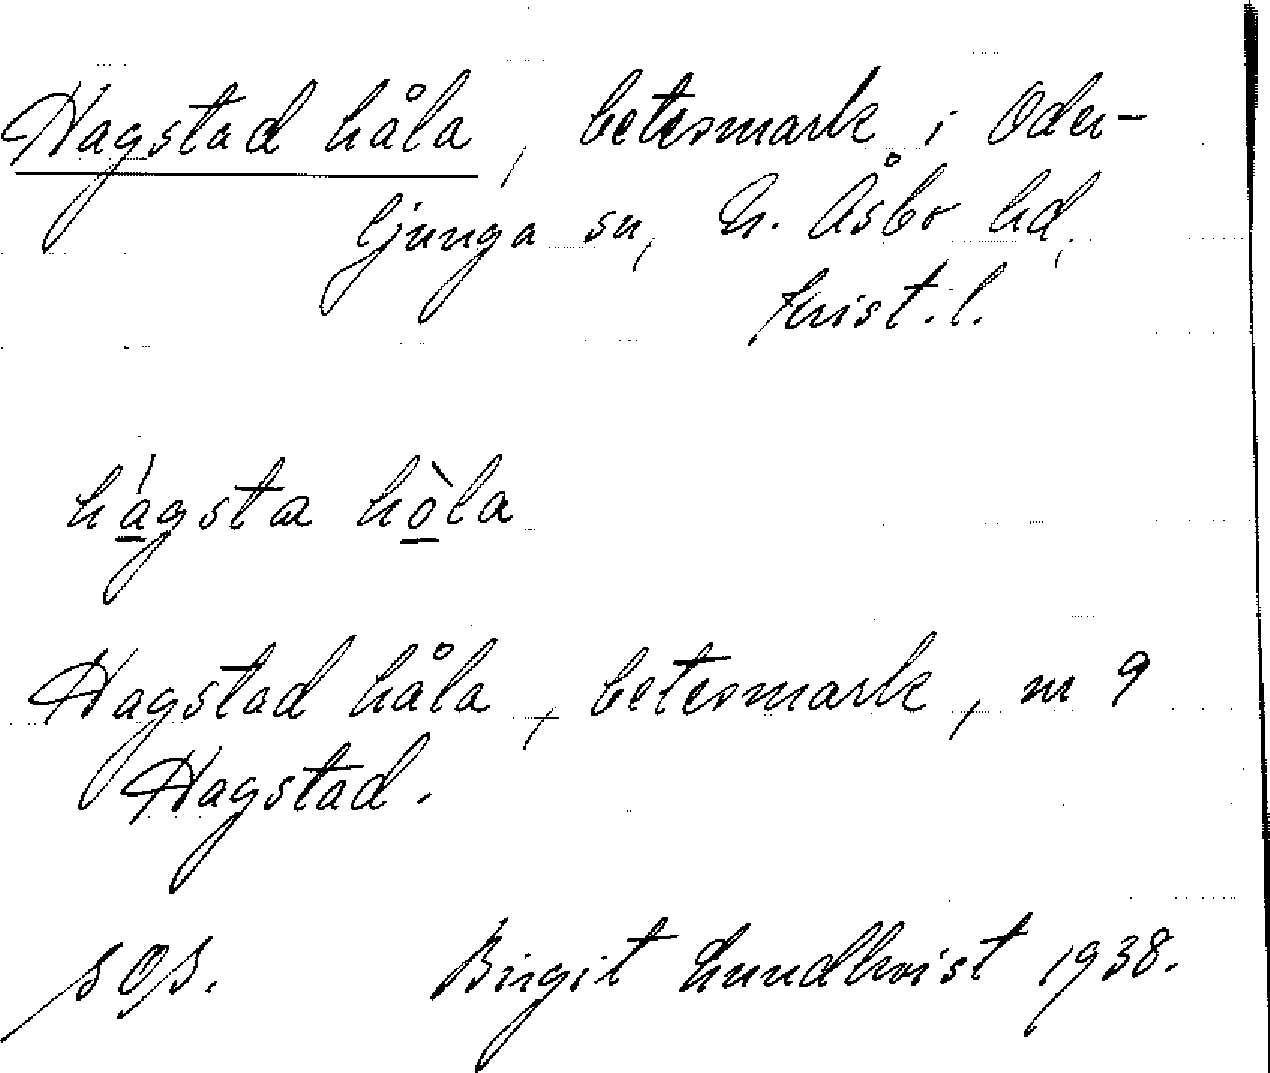 Hagstad håla, betesmark i Oder-
ljunga sn, N. Åsbo hd,
Krist. l.
hágsta hòla
Hagstad håla, betesmark, nr 9
Hagstad.
sops.
Birgit Lundkvist 1938.